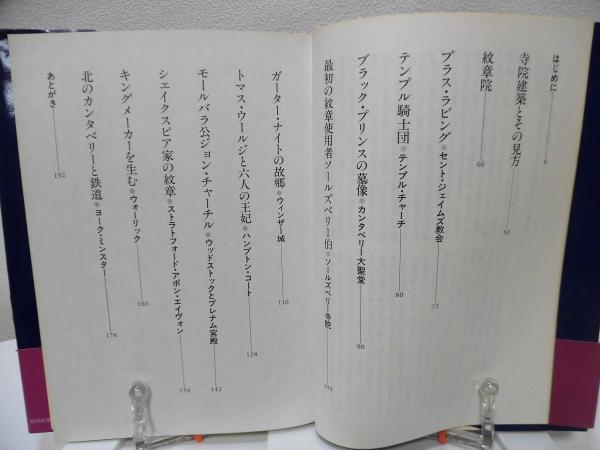 はじめに
寺院建築とその見方 50
紋章院 66
ブラス・ラビング●セント・ジェイムズ教会 72
テンプル騎士団●テンプル・チャーチ 80
ブラック・プリンスの墓像●カンタベリー大聖堂 90
最初の紋章使用者ソールズベリー伯●ソールズベリー寺院 104
ガーター・ナイトの故郷●ウィンザー城 116
トマス・ウールジと六人の王妃●ハンプトン・コート 128
モールバラ公ジョン・チャーチル●ウッドストックとブレナム宮殿 142
シェイクスピア家の紋章●ストラトフォード・アポン・エイヴォン 154
キングメーカーを生む●ウォーリック 166
北のカンタベリーと鉄道●ヨーク・ミンスター 178
あとがき 192